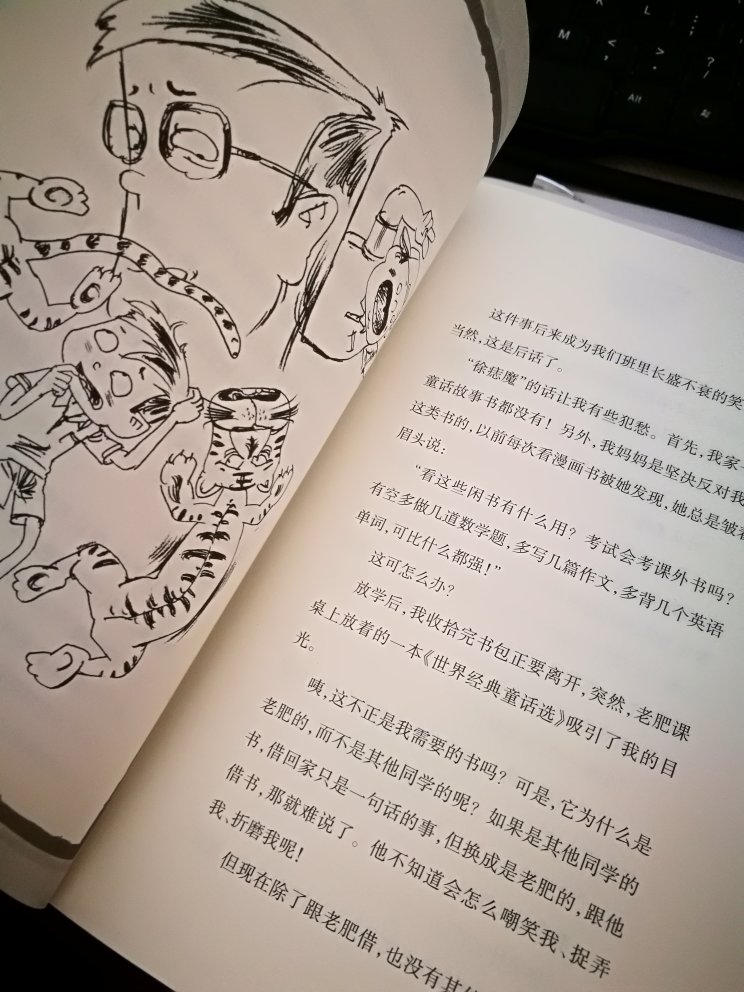 K L ;
M < > ? /
, .
Alt
这件事后来成为我们班里长盛不衰的笑
当然，这是后话了。
“徐痣魔”的话让我有些犯愁。首先，我家
童话故事书都没有！另外，我妈妈是坚决反对我
这类书的，以前每次看漫画书被她发现，她总是皱着
眉头说：
“看这些闲书有什么用？考试会考课外书吗？
有空多做几道数学题，多写几篇作文，多背几个英语
单词，可比什么都强！”
这可怎么办？
放学后，我收拾完书包正要离开，突然，老肥课
桌上放着的一本《世界经典童话选》吸引了我的目
光。
咦，这不正是我需要的书吗？可是，它为什么是
老肥的，而不是其他同学的呢？如果是其他同学的
书，借回家只是一句话的事，但换成是老肥的，跟他
借书，那就难说了。他不知道会怎么嘲笑我、捉弄
我、折磨我呢！
但现在除了跟老肥借，也没有其